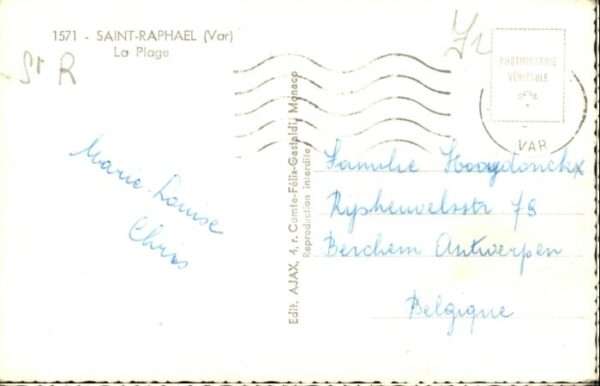 1571 - SAINT-RAPHAEL (Var)
La Plage
St R
PHOTOGRAPHIE
VÉRITABLE
VAR
Marie-Louise
Chris
Edit. AJAX, 4, r. Comte-Félix-Gastaldi, Monaco
Reproduction interdite
Familie Hoogdonckx
Rysheuvelsstr 78
Berchem Antwerpen
Belgique